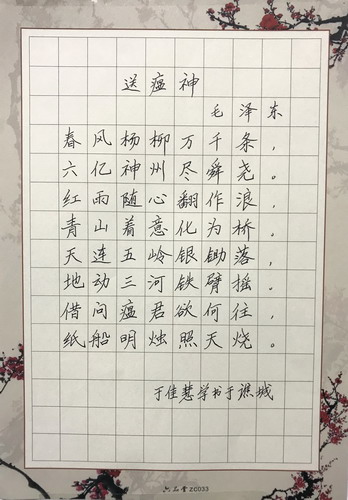 送瘟神
毛泽东
春风杨柳万千条，
六亿神州尽舜尧。
红雨随心翻作浪，
青山着意化为桥。
天连五岭银锄落，
地动三河铁臂摇。
借问瘟君欲何往，
纸船明烛照天烧。
于佳慧学书于谯城
六品堂 ZC033